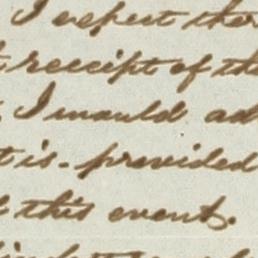 I expect the
receipt of th
I would ad
t is - provided
this event.